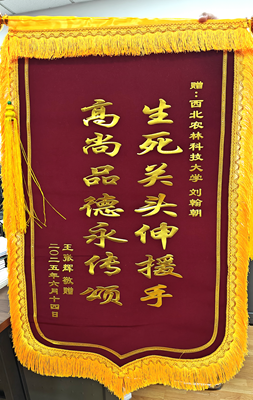 赠：西北农林科技大学 刘翰朝
生死关头伸援手
高尚品德永传颂
王张辉 敬赠
二〇二五年六月十四日